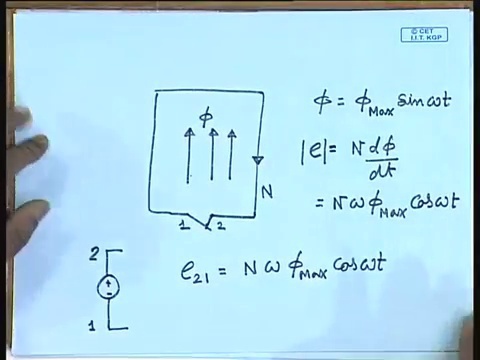 © CET
I.I.T. KGP
ϕ = ϕMax sinωt
ϕ
|e| = N dϕ/dt
N
= NωϕMax Cosωt
1 2
2
e21 = Nω ϕMax Cosωt
1